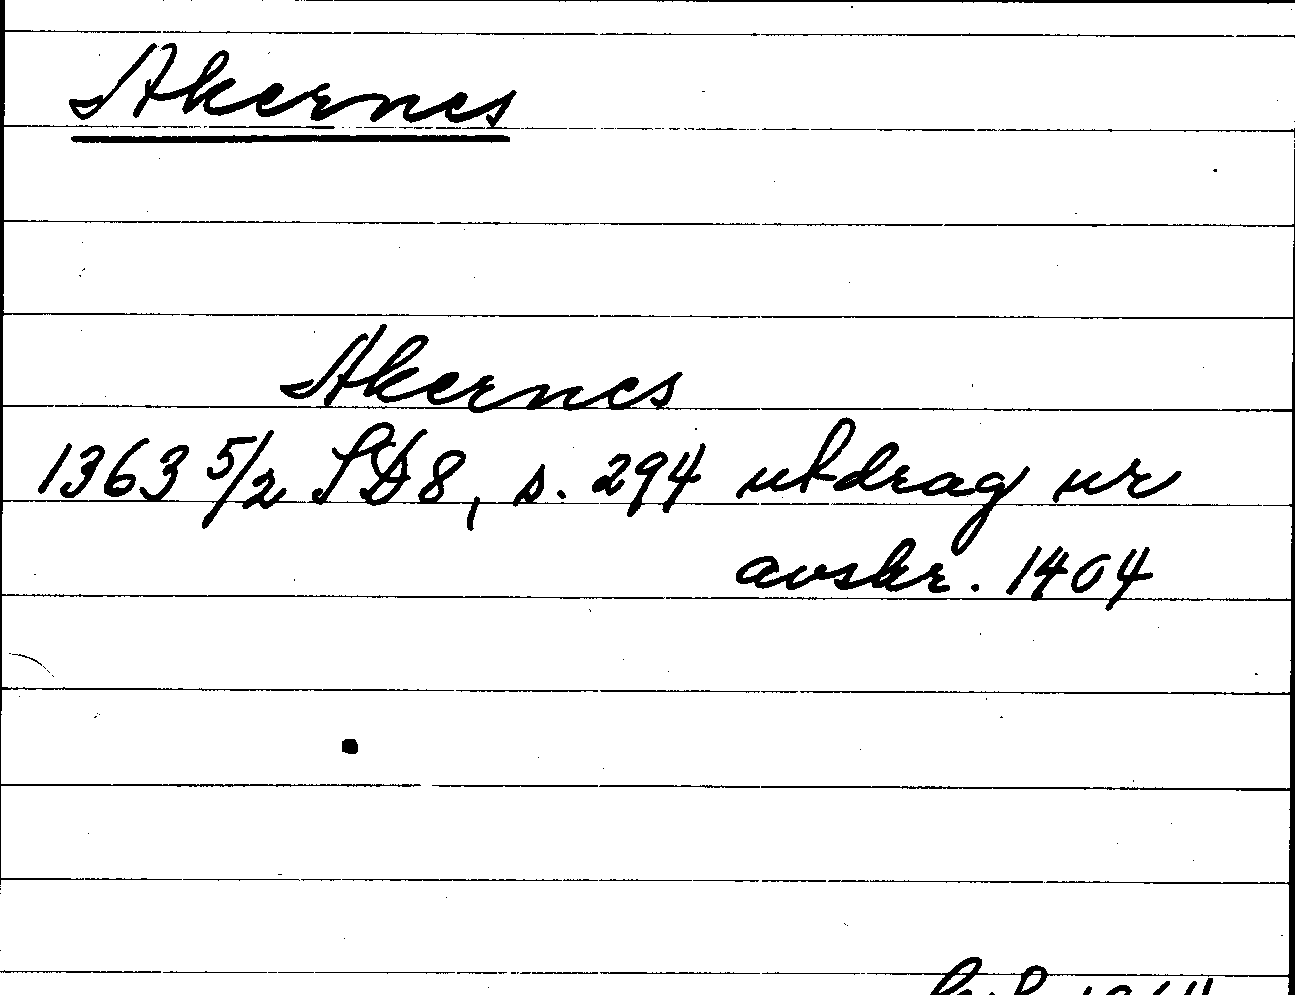 Akernes
Akernes
1363 5/2 SD 8, s. 294 utdrag ur
avskr. 1404